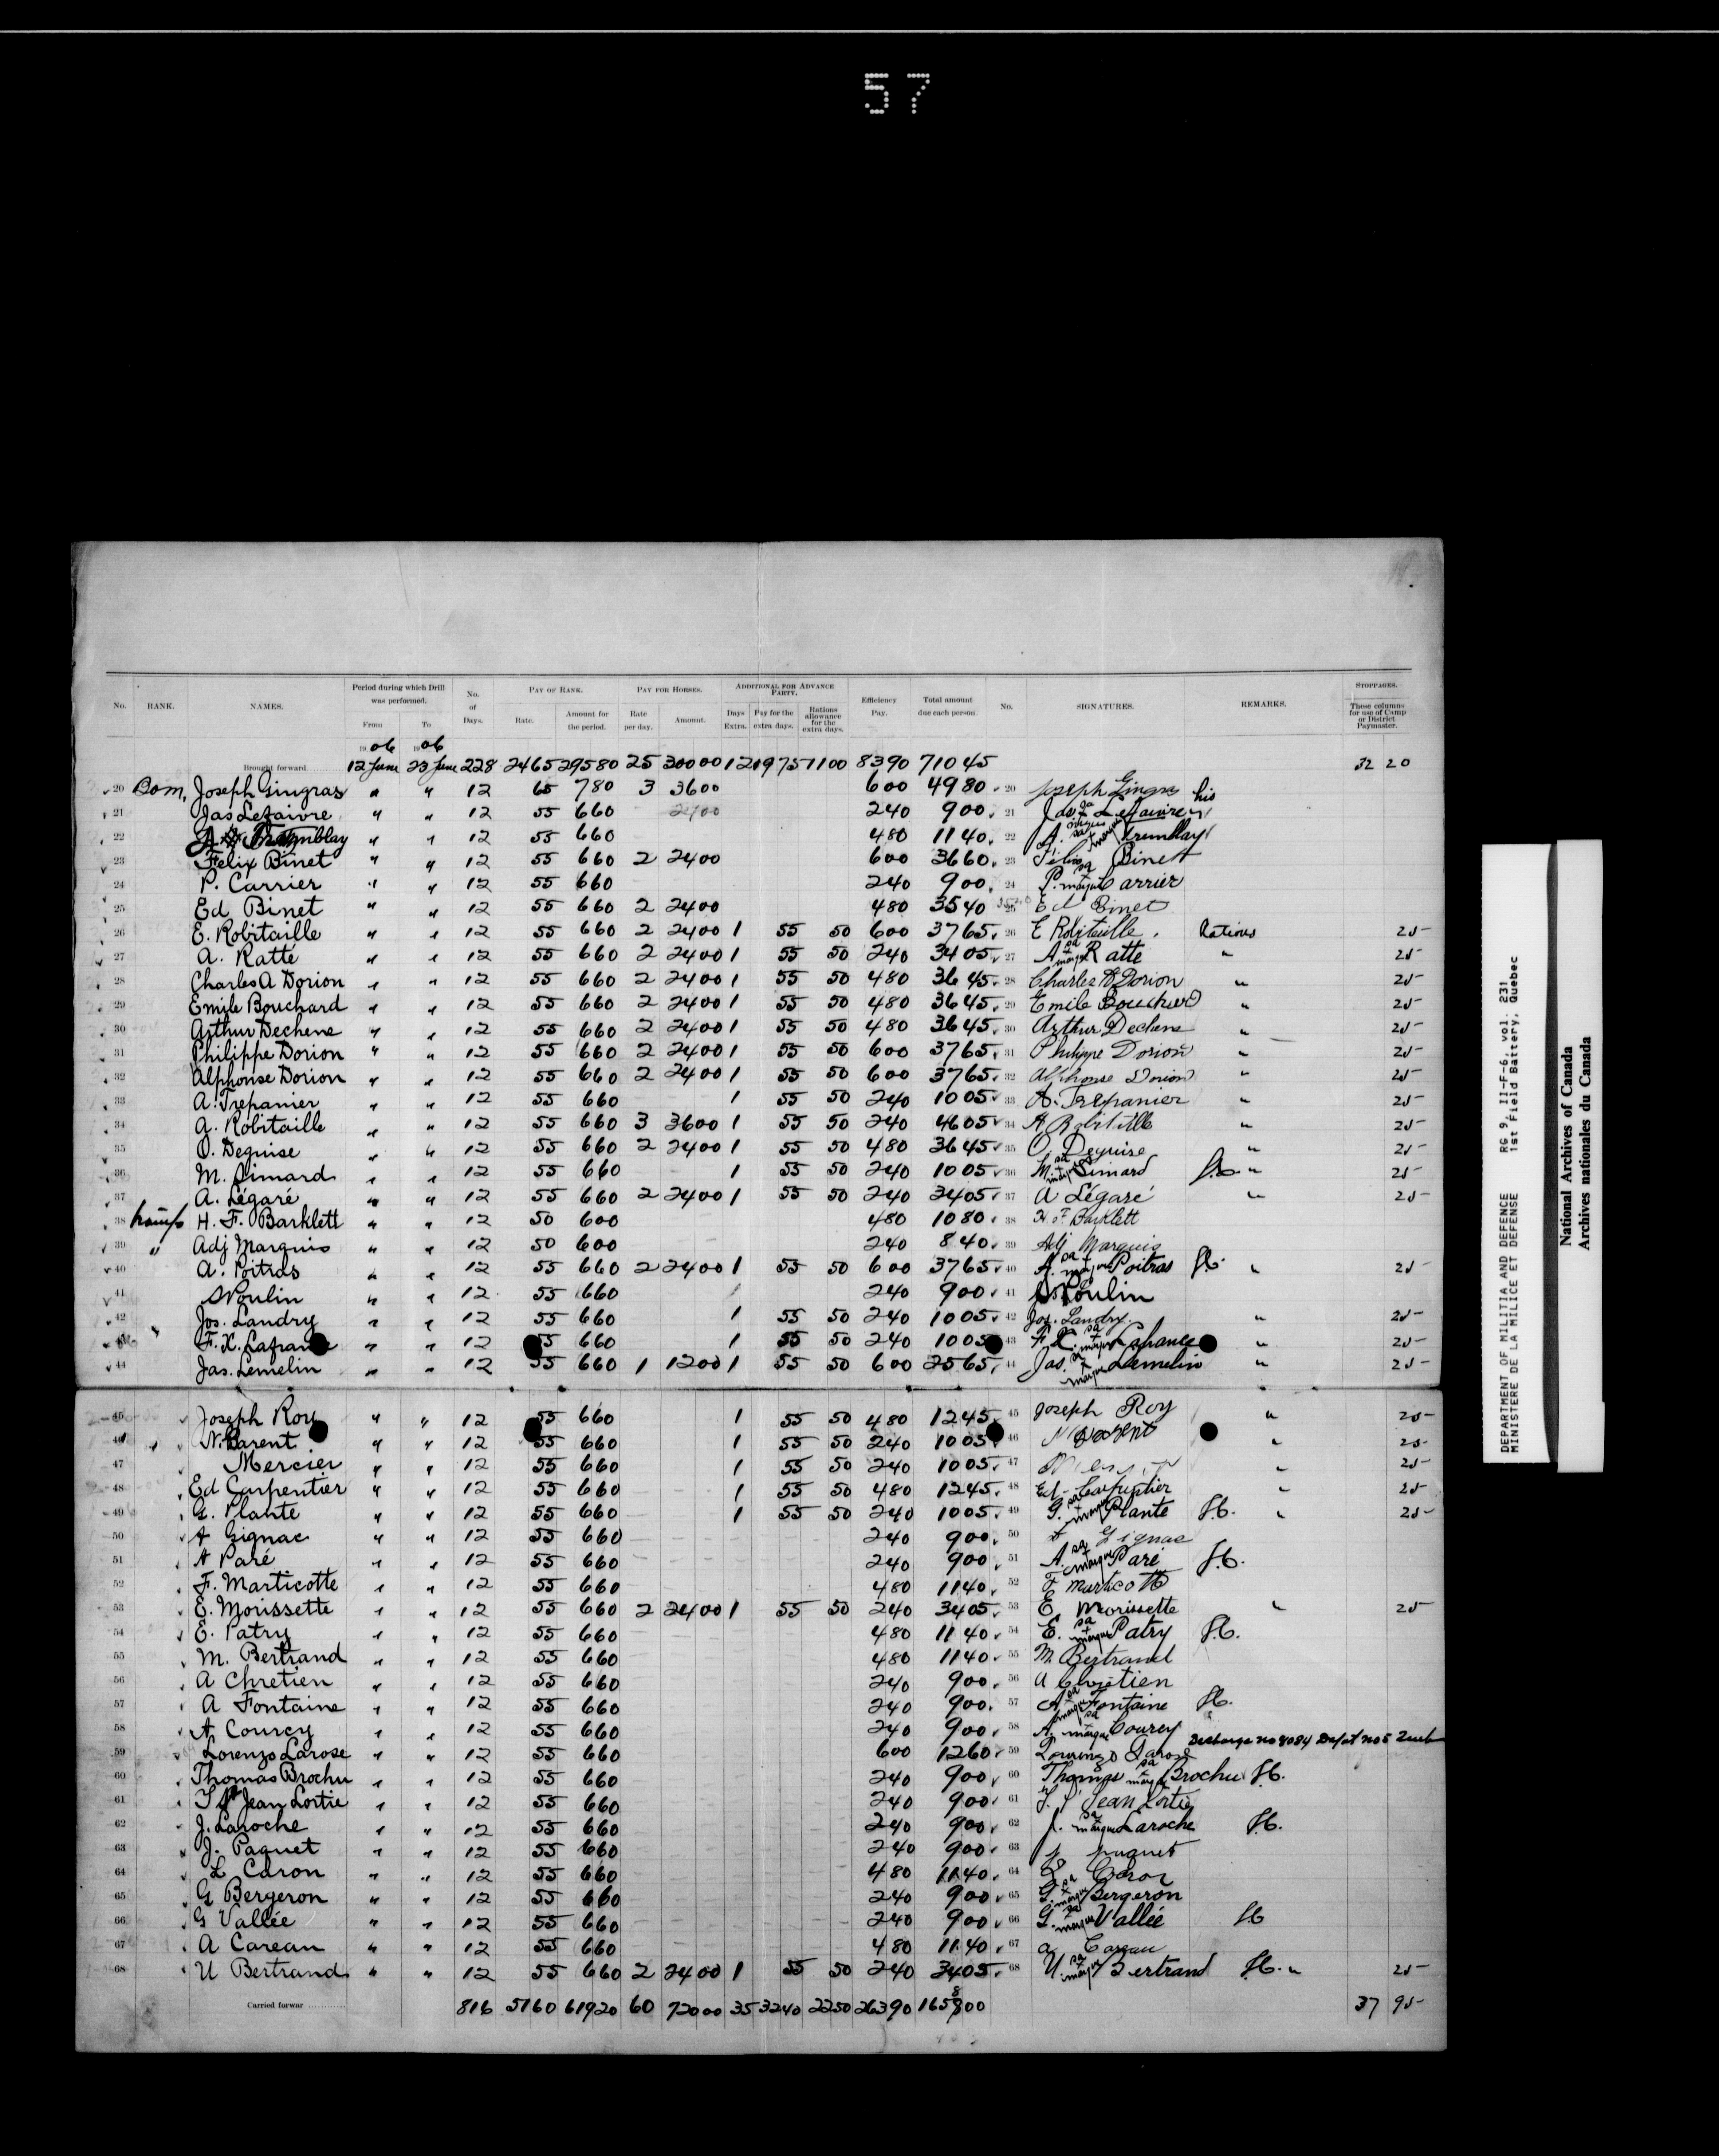 57
No. RANK. NAMES. Period during which Drill was performed. From To No. of Days. PAY OF RANK. Rate. Amount for the period. PAY FOR HORSES. Rate per day. Amount. ADDITIONAL FOR ADVANCE PARTY. Days Extra. Pay for the extra days. Rations allowance for the extra days. Efficiency Pay. Total amount due each person. No. SIGNATURES. REMARKS. STOPPAGES. These columns for use of Camp or District Paymaster.
1906 1906
Brought forward 12 June 23 June 228 2465 29580 25 30000 12 1975 1100 8390 71045 32 20
20 Bom, Joseph Gingras " " 12 65 780 3 3600 600 4980 20 Joseph Gingras his
21 Jas Lefaivre " " 12 55 660 2400 240 900 21 Jas sa + Lefaivre
22 Tremblay " " 12 55 660 480 1140 22 A. sa marque Tremblay
23 Felix Binet " " 12 55 660 2 2400 600 3660 23 Felix Binet
24 P. Carrier " " 12 55 660 240 900 24 P. sa marque Carrier
25 Ed Binet " " 12 55 660 2 2400 480 3540 25 Ed Binet
26 E. Robitaille " " 12 55 660 2 2400 1 55 50 600 3765 26 E Robitaille Rations 25
27 A. Ratté " " 12 55 660 2 2400 1 55 50 240 3405 27 A sa marque Ratte " 25
28 Charles A Dorion " " 12 55 660 2 2400 1 55 50 480 3645 28 Charles A Dorion " 25
29 Emile Bouchard " " 12 55 660 2 2400 1 55 50 480 3645 29 Emile Bouchard " 25
30 Arthur Dechene " " 12 55 660 2 2400 1 55 50 480 3645 30 Arthur Dechene " 25
31 Philippe Dorion " " 12 55 660 2 2400 1 55 50 600 3765 31 Philippe Dorion " 25
32 Alphonse Dorion " " 12 55 660 2 2400 1 55 50 600 3765 32 Alphonse Dorion " 25
33 A. Trepanier " " 12 55 660 1 55 50 240 1005 33 A. Trepanier " 25
34 A. Robitaille " " 12 55 660 3 3600 1 55 50 240 4605 34 A Robitaille " 25
35 O. Deguise " " 12 55 660 2 2400 1 55 50 480 3645 35 O Deguise " 25
36 M. Simard " " 12 55 660 1 55 50 240 1005 36 M. sa marque Simard " 25
37 A. Légaré " " 12 55 660 2 2400 1 55 50 240 3405 37 A Légaré " 25
38 H. F. Barklett " " 12 50 600 480 1080 38 H. F. Barklett
39 " Adj Marquis " " 12 50 600 240 840 39 Adj Marquis
40 A. Poitras " " 12 55 660 2 2400 1 55 50 600 3765 40 A. sa marque Poitras " 25
41 Poulin " " 12 55 660 240 900 41 Poulin
42 Jos. Landry " " 12 55 660 1 55 50 240 1005 42 Jos. Landry " 25
43 F. X. Lafrance " " 12 55 660 1 55 50 240 1005 43 F. X. sa + marque Lafrance " 25
44 Jas. Lemelin " " 12 55 660 1 1200 1 55 50 600 2565 44 Jas. sa + marque Lemelin " 25
45 Joseph Roy " " 12 55 660 1 55 50 480 1245 45 Joseph Roy " 25
46 N. Parent " " 12 55 660 1 55 50 240 1005 46 N Parent " 25
47 Mercier " " 12 55 660 1 55 50 240 1005 47 " 25
48 Ed Carpentier " " 12 55 660 1 55 50 480 1245 48 Ed Carpentier " 25
49 G. Plante " " 12 55 660 1 55 50 240 1005 49 G. sa marque Plante " 25
50 A Gignac " " 12 55 660 240 900 50 A Gignac
51 A Paré " " 12 55 660 240 900 51 A. sa marque Paré
52 F. Marticotte " " 12 55 660 480 1140 52 F Marticotte
53 E. Morissette " " 12 55 660 2 2400 1 55 50 240 3405 53 E Morissette " 25
54 E. Patry " " 12 55 660 480 1140 54 E. sa + marque Patry
55 M. Bertrand " " 12 55 660 480 1140 55 M. Bertrand
56 A Chretien " " 12 55 660 240 900 56 A Chretien
57 A Fontaine " " 12 55 660 240 900 57 A sa marque Fontaine
58 A Courcy " " 12 55 660 240 900 58 A. sa marque Courcy
59 Lorenzo Larose " " 12 55 660 600 1260 59 Lorenzo Larose Discharge no 8084
60 Thomas Brochu " " 12 55 660 240 900 60 Thomas sa marque Brochu
61 Jean Lortie " " 12 55 660 240 900 61 Jean Lortie
62 J. Laroche " " 12 55 660 240 900 62 J. sa marque Laroche
63 J. Paquet " " 12 55 660 240 900 63 J Paquet
64 L Caron " " 12 55 660 480 1140 64 L Caron
65 G Bergeron " " 12 55 660 240 900 65 G. sa marque Bergeron
66 G Vallée " " 12 55 660 240 900 66 G. sa marque Vallée
67 A Careau " " 12 55 660 480 1140 67 a Careau
68 U Bertrand " " 12 55 660 2 2400 1 55 50 240 3405 68 U sa marque Bertrand " 25
Carried forwar 816 5160 61920 60 72000 35 3240 2250 26390 165800 37 95
DEPARTMENT OF MILITIA AND DEFENCE RG 9, II-F-6, vol. 231
MINISTERE DE LA MILICE ET DEFENSE 1st Field Battery, Quebec
National Archives of Canada
Archives nationales du Canada